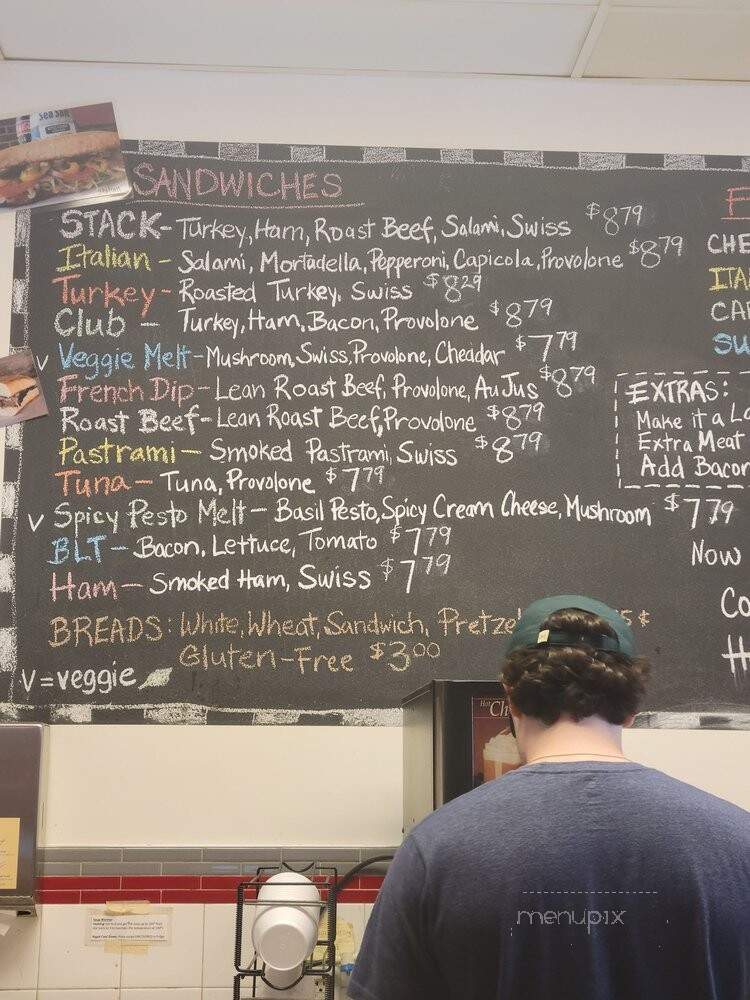 SANDWICHES
STACK- Turkey, Ham, Roast Beef, Salami, Swiss $8.79
Italian - Salami, Mortadella, Pepperoni, Capicola, Provolone $8.79
Turkey- Roasted Turkey, Swiss $8.29
Club - Turkey, Ham, Bacon, Provolone $8.79
V Veggie Melt- Mushroom, Swiss, Provolone, Cheddar $7.79
French Dip- Lean Roast Beef, Provolone, Au Jus $8.79
Roast Beef- Lean Roast Beef, Provolone $8.79
Pastrami- Smoked Pastrami, Swiss $8.79
Tuna- Tuna, Provolone $7.79
V Spicy Pesto Melt- Basil Pesto, Spicy Cream Cheese, Mushroom $7.79
BLT- Bacon, Lettuce, Tomato $7.79
Ham- Smoked Ham, Swiss $7.79
BREADS: White, Wheat, Sandwich, Pretze 5¢
Gluten-Free $3.00
V=veggie
CHE
ITA
CA
SU
EXTRAS:
Make it a
Extra Meat
Add Bacon
Now
Co
H
Hot Ch
menupix